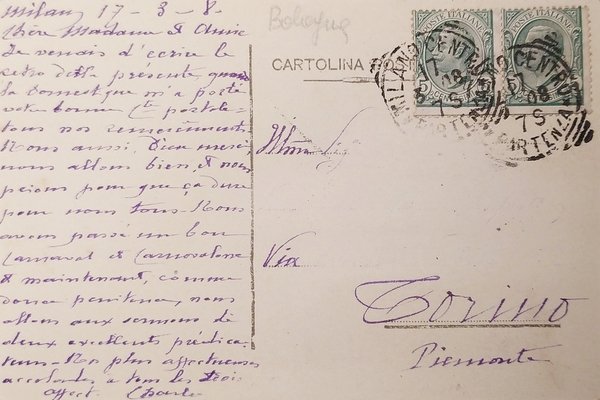 Milan, 17-3-8-
Chère Madame et Amie
Je venais d'écrire le
retro della presente, quand
la bonne m'a porté
votre bonne Cte postale-
tous nos remerciments
Nous aussi, Dieu merci,
nous allons bien, et nous
prions pour que ça dure
pour nous tous. Nous
avons passé un bon
Carnaval et Carnovalone
et maintenant, comme
douce penitence, nous
allons aux sermons de
deux excellents prédica-
teurs- Nos plus affectueuses
accolades a tous les trois
affect.
Bologna
CARTOLINA POSTALE
POSTE ITALIANE
POSTE ITALIANE
MILANO CENTRO
17 3 08
7 S
PARTENZA
MILANO CENTRO
17 3 08
7 S
PARTENZA
Via
Torino
Piemonte